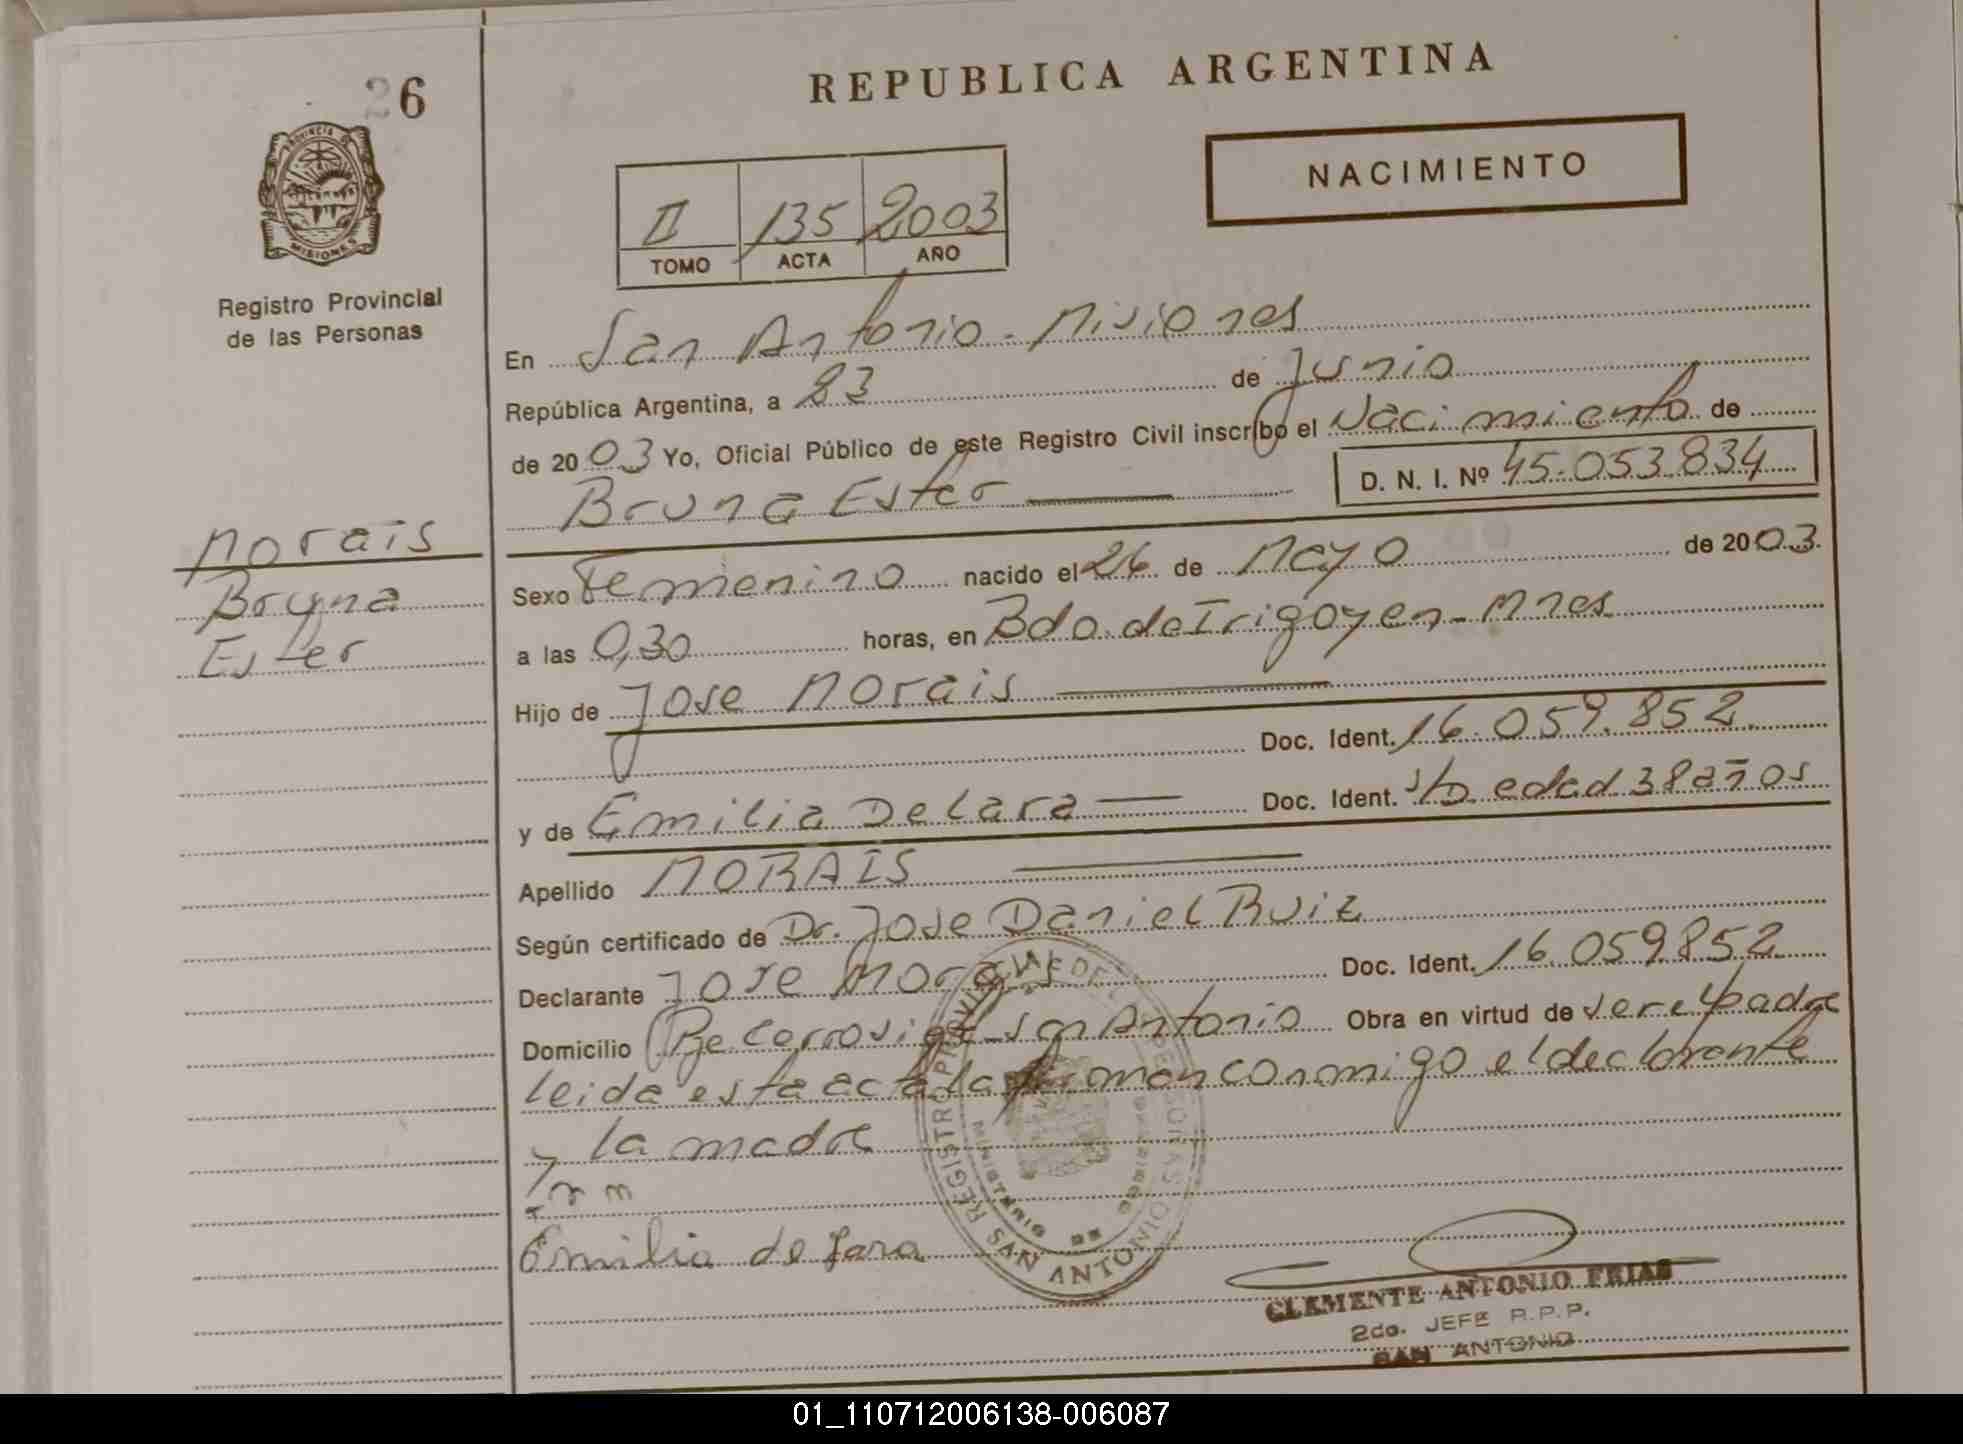 26
REPUBLICA ARGENTINA
NACIMIENTO
II 135 2003
TOMO ACTA AÑO
PROVINCIA DE
MISIONES
Registro Provincial
de las Personas
En San Antonio - Misiones
República Argentina, a 23 de Junio
de 2003 Yo, Oficial Público de este Registro Civil inscribo el Nacimiento de
Bruna Ester D. N. I. Nº 45.053.834
Morais
Bruna
Ester
Sexo Femenino nacido el 26 de Mayo de 2003.
a las 0,30 horas, en Bdo. de Irigoyen - Mnes
Hijo de Jose Morais
Doc. Ident. 16.059.852.
y de Emilia De Lara Doc. Ident. s/D edad 38 años
Apellido MORAIS
Según certificado de Dr. Jose Daniel Ruiz
Declarante Jose Morais Doc. Ident. 16.059852
Domicilio San Antonio Obra en virtud de ser el padre
leida esta acta la firman conmigo el declarante
y la madre
Emilia de Lara
REGISTRO PROVINCIAL DE LAS PERSONAS
MINISTERIO DE GOBIERNO
SAN ANTONIO
CLEMENTE ANTONIO FRIAS
2do. JEFE R.P.P.
SAN ANTONIO
01_110712006138-006087